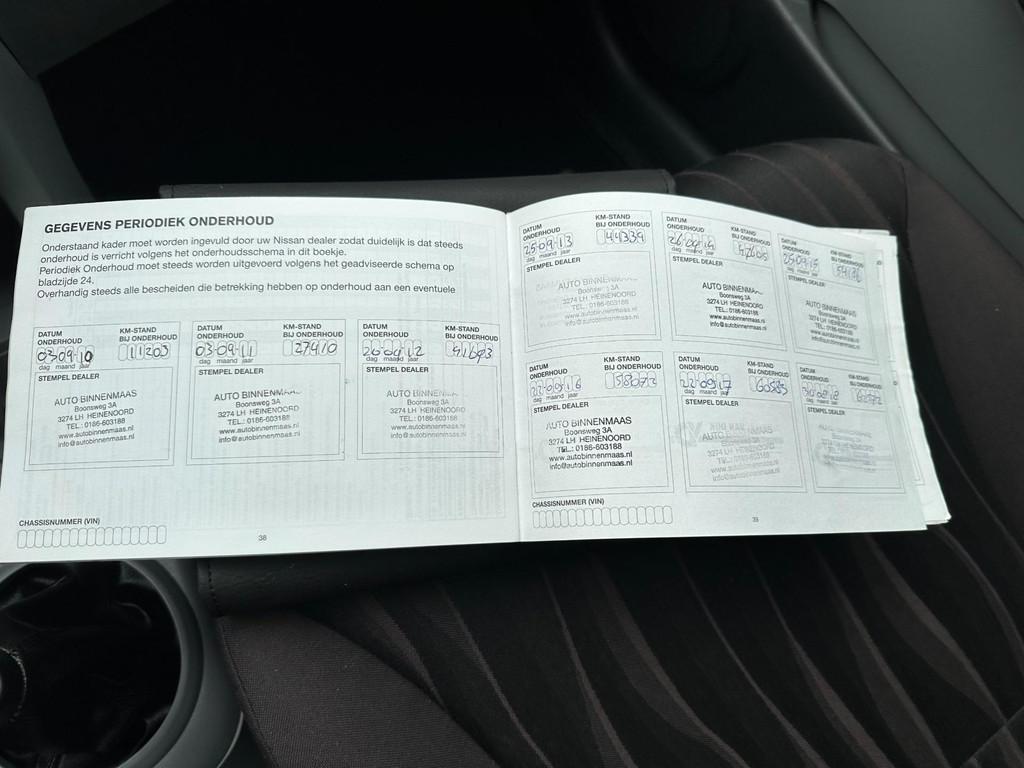 GEGEVENS PERIODIEK ONDERHOUD
Onderstaand kader moet worden ingevuld door uw Nissan dealer zodat duidelijk is dat steeds
onderhoud is verricht volgens het onderhoudsschema in dit boekje.
Periodiek Onderhoud moet steeds worden uitgevoerd volgens het geadviseerde schema op
bladzijde 24.
Overhandig steeds alle bescheiden die betrekking hebben op onderhoud aan een eventuele
DATUM ONDERHOUD
KM-STAND BIJ ONDERHOUD
03-09-10 11203
dag maand jaar
STEMPEL DEALER
AUTO BINNENMAAS
Boonsweg 3A
3274 LH HEINENOORD
TEL.: 0186-603188
www.autobinnenmaas.nl
info@autobinnenmaas.nl
DATUM ONDERHOUD
KM-STAND BIJ ONDERHOUD
03-09-11 27410
dag maand jaar
STEMPEL DEALER
AUTO BINNENMAAS
Boonsweg 3A
3274 LH HEINENOORD
TEL.: 0186-603188
www.autobinnenmaas.nl
info@autobinnenmaas.nl
DATUM ONDERHOUD
KM-STAND BIJ ONDERHOUD
dag maand jaar
STEMPEL DEALER
AUTO BINNENMAAS
Boonsweg 3A
3274 LH HEINENOORD
TEL.: 0186-603188
www.autobinnenmaas.nl
info@autobinnenmaas.nl
CHASSISNUMMER (VIN)
38
DATUM ONDERHOUD
KM-STAND BIJ ONDERHOUD
25-09-13 44339
dag maand jaar
STEMPEL DEALER
AUTO BINNENMAAS
Boonsweg 3A
3274 LH HEINENOORD
TEL.: 0186-603188
www.autobinnenmaas.nl
info@autobinnenmaas.nl
DATUM ONDERHOUD
KM-STAND BIJ ONDERHOUD
26-09-14
dag maand jaar
STEMPEL DEALER
AUTO BINNENMAAS
Boonsweg 3A
3274 LH HEINENOORD
TEL.: 0186-603188
www.autobinnenmaas.nl
info@autobinnenmaas.nl
DATUM ONDERHOUD
KM-STAND BIJ ONDERHOUD
25-09-15
dag maand jaar
STEMPEL DEALER
AUTO BINNENMAAS
Boonsweg 3A
3274 LH HEINENOORD
TEL.: 0186-603188
www.autobinnenmaas.nl
info@autobinnenmaas.nl
DATUM ONDERHOUD
KM-STAND BIJ ONDERHOUD
22-09-16 58073
dag maand jaar
STEMPEL DEALER
AUTO BINNENMAAS
Boonsweg 3A
3274 LH HEINENOORD
TEL.: 0186-603188
www.autobinnenmaas.nl
info@autobinnenmaas.nl
DATUM ONDERHOUD
KM-STAND BIJ ONDERHOUD
22-09-17 60583
dag maand jaar
STEMPEL DEALER
AUTO BINNENMAAS
Boonsweg 3A
3274 LH HEINENOORD
TEL.: 0186-603188
www.autobinnenmaas.nl
info@autobinnenmaas.nl
DATUM ONDERHOUD
KM-STAND BIJ ONDERHOUD
dag maand jaar
STEMPEL DEALER
CHASSISNUMMER (VIN)
39